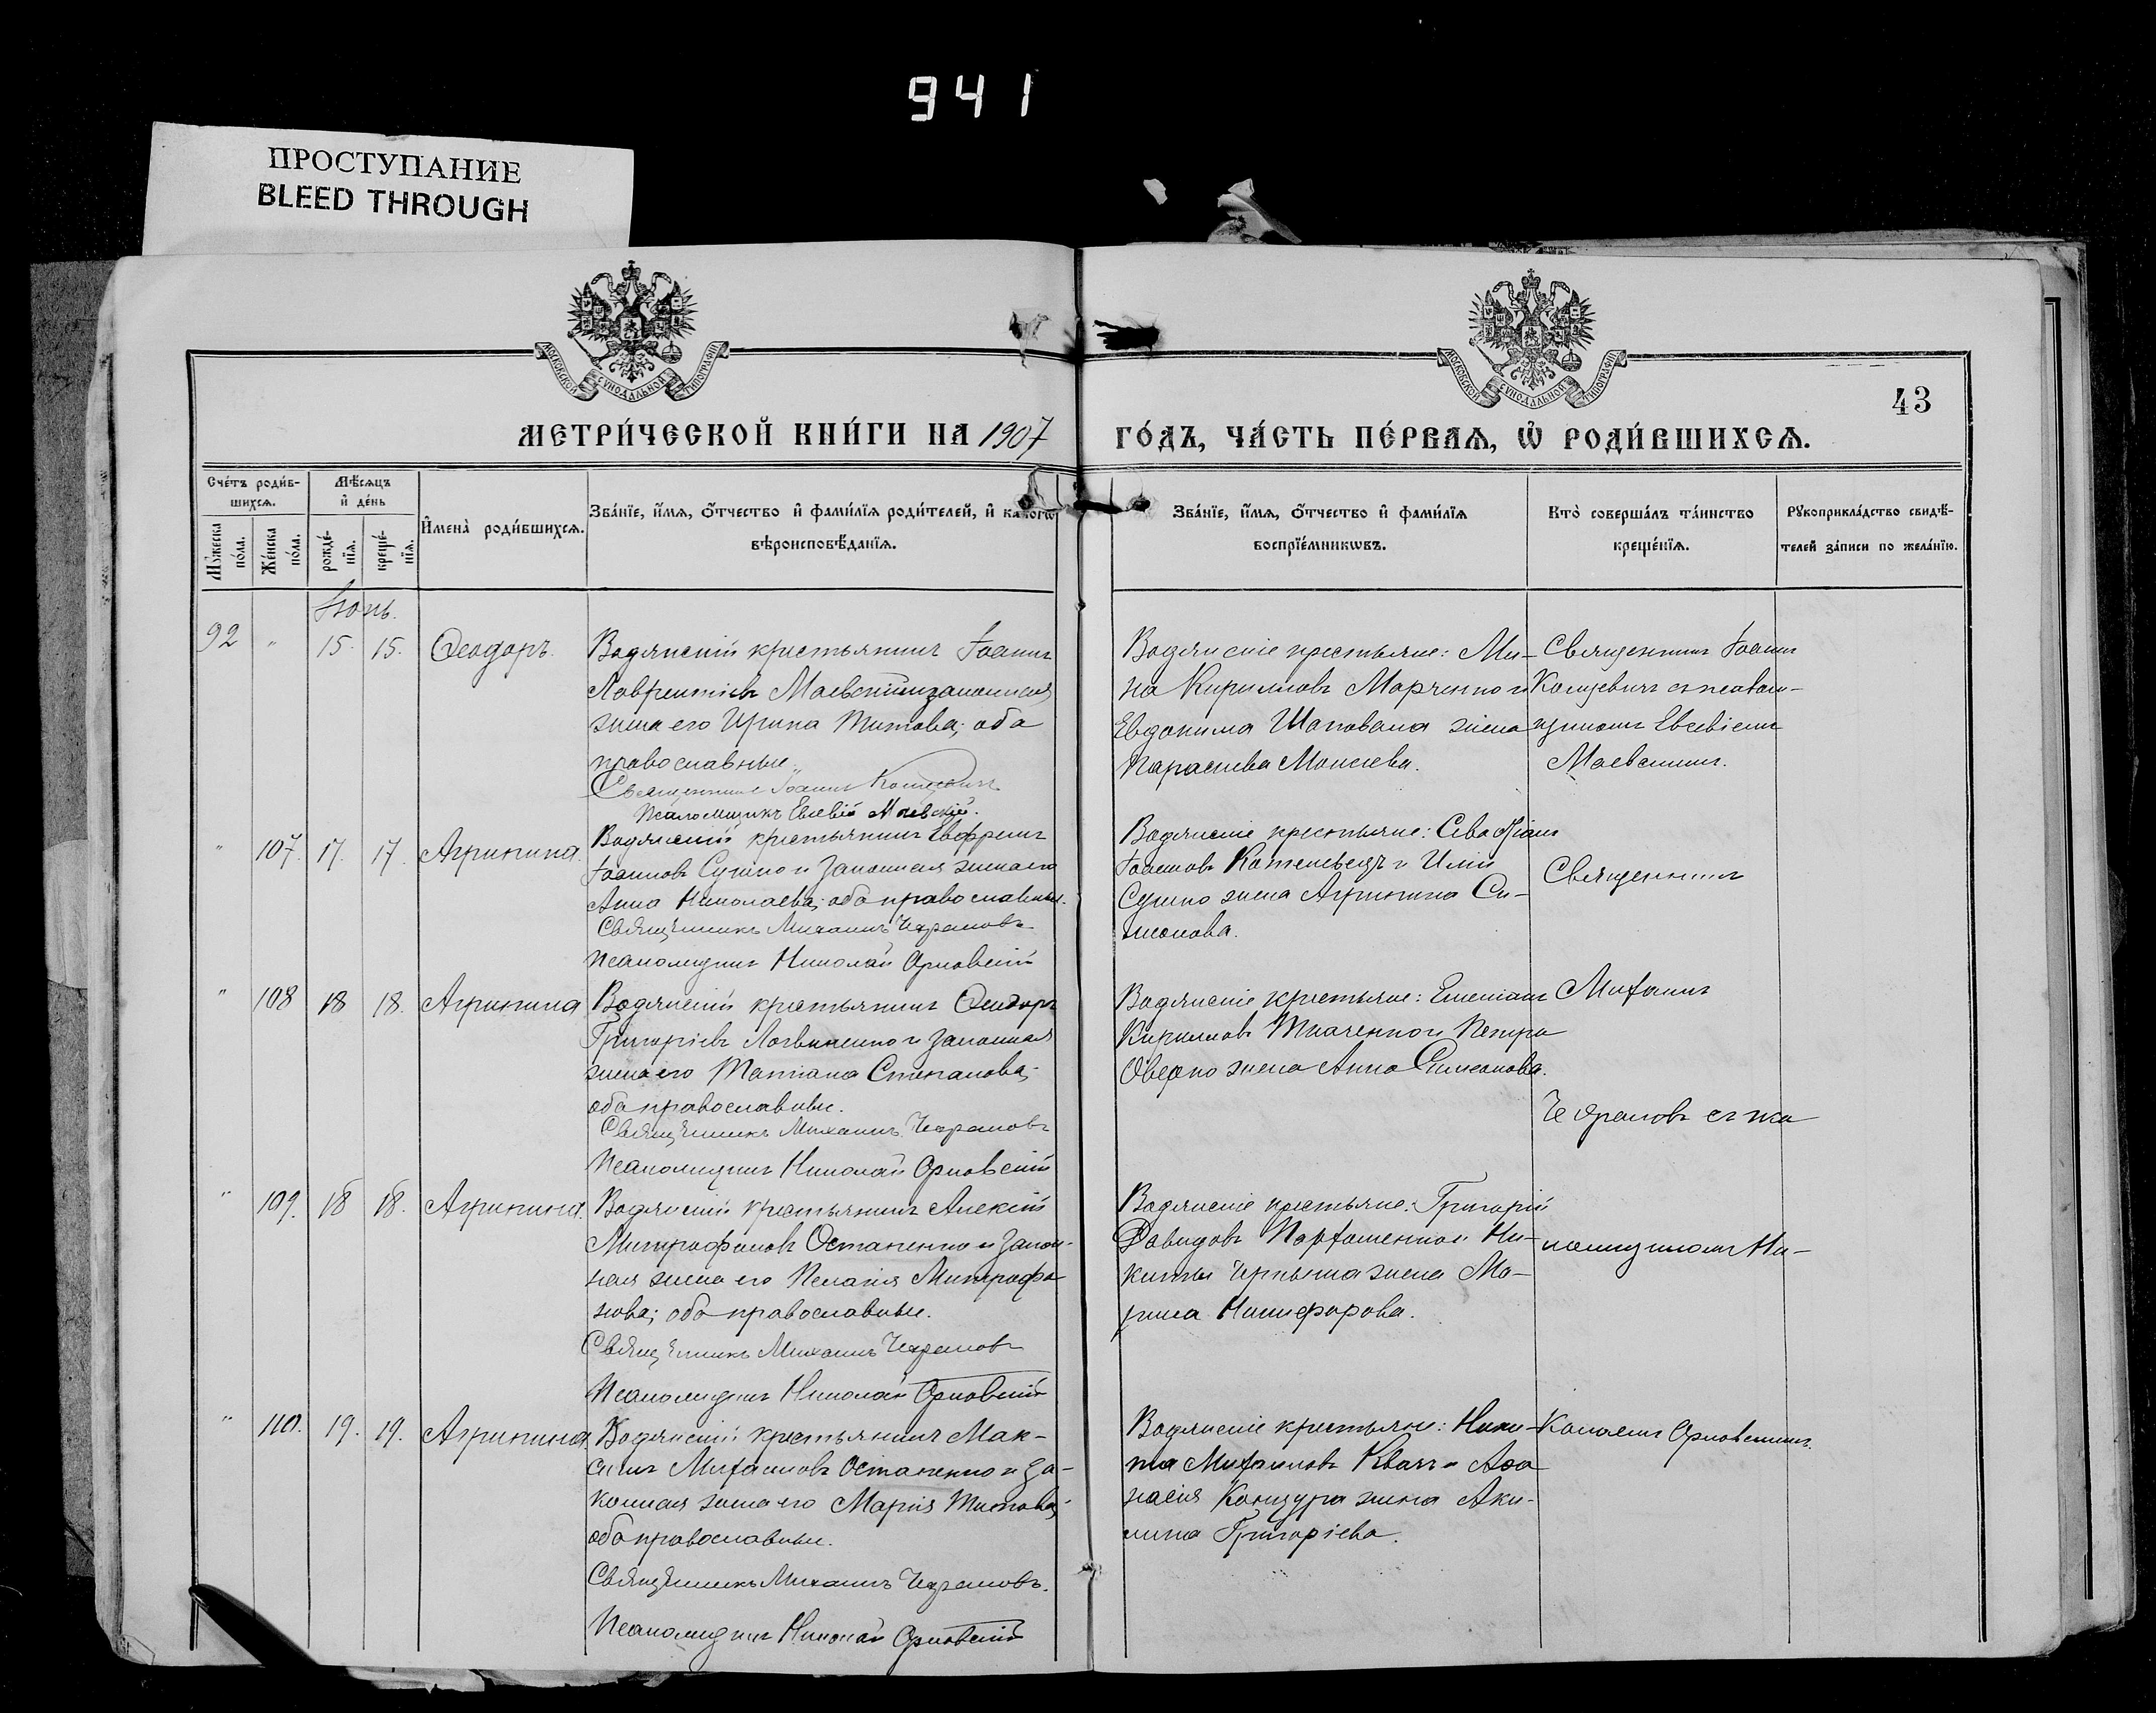 941
ПРОСТУПАНИЕ
BLEED THROUGH
МОСКОВСКОЙ СУНОДАЛЬНОЙ ТИПОГРАФІИ
МОСКОВСКОЙ СУНОДАЛЬНОЙ ТИПОГРАФІИ
43
МЕТРИ́ЧЕСКОЙ КНИ́ГИ НА 1907 ГО́ДЪ, ЧА́СТЬ ПЕ́РВАѦ, Ѡ҆ РОДИ́ВШИХСѦ.
Сче́тъ роди́в-
шихсѧ.
Мѣ́сѧцъ
и҆ де́нь
Мꙋ́жеска
по́ла.
Же́нска
по́ла.
рожде́-
нїѧ.
креще́-
нїѧ.
И҆мена̀ роди́вшихсѧ.
Зва́нїе, и҆́мѧ, ѻ҆́тчество и҆ фами́лїѧ роди́телей, и҆ како́гѡ
вѣроисповѣ́данїѧ.
Зва́нїе, и҆́мѧ, ѻ҆́тчество и҆ фами́лїѧ
воспрїе́мникѡвъ.
Кто̀ соверша́лъ та́инство
креще́нїѧ.
Рꙋкоприкла́дство свидѣ́-
телей за́писи по жела́нїю.
Іюнь.
92 " 15. 15. Ѳеодоръ.
Водянскій крестьянинъ Іоаннъ
Лаврентіевъ Маевскій и законная
жена его Ирина Титова; оба
православные.
Священникъ Іоаннъ Кошцевичъ
Псаломщикъ Евсевій Маевскій.
Водянскіе крестьяне: Ми-
на Кирилловъ Марченко и
Евдокима Шаповала жена
Параскева Моисеева.
Священникъ Іоаннъ
Кошцевичъ съ псалом-
щикомъ Евсевіемъ
Маевскимъ.
" 107. 17. 17. Агрипина.
Водянскій крестьянинъ Евфремъ
Іоанновъ Сушко и законная жена его
Анна Николаева; оба православные.
Священникъ Михаилъ Чеграновъ
Псаломщикъ Николай Орловскій
Водянскіе крестьяне: Севастіанъ
Іоанновъ Котелевецъ и Иліи
Сушко жена Агрипина Си-
меонова.
Священникъ
" 108 18 18. Агрипина
Водянскій крестьянинъ Ѳеодоръ
Григоріевъ Логвиненко и законная
жена его Татіана Стефанова;
оба православные.
Священникъ Михаилъ Чеграновъ
Псаломщикъ Николай Орловскій
Водянскіе крестьяне: Емеліанъ
Кирилловъ Ткаченко и Петра
Оверко жена Анна Симеонова.
Михаилъ
съ пса
" 109. 18 18. Агрипина.
Водянскій крестьянинъ Алексій
Митрофановъ Остапенко и закон-
ная жена его Пелагія Митрофа-
нова; оба православные.
Священникъ Михаилъ Чеграновъ
Псаломщикъ Николай Орловскій
Водянскіе крестьяне: Григорій
Давидовъ Парфаменко и Ни-
киты Черныша жена Ма-
рина Никифорова.
ломщикомъ Ни-
" 110. 19. 19. Агрипина.
Водянскій крестьянинъ Мак-
симъ Михаиловъ Остапенко и за-
конная жена его Марія Титова;
оба православные.
Священникъ Михаилъ Чеграновъ.
Псаломщикъ Николай Орловскій
Водянскіе крестьяне: Ники-
та Михаиловъ Квачъ и Аѳа
насія Канцура жена Аки-
лина Григоріева.
колаемъ Орловскимъ.